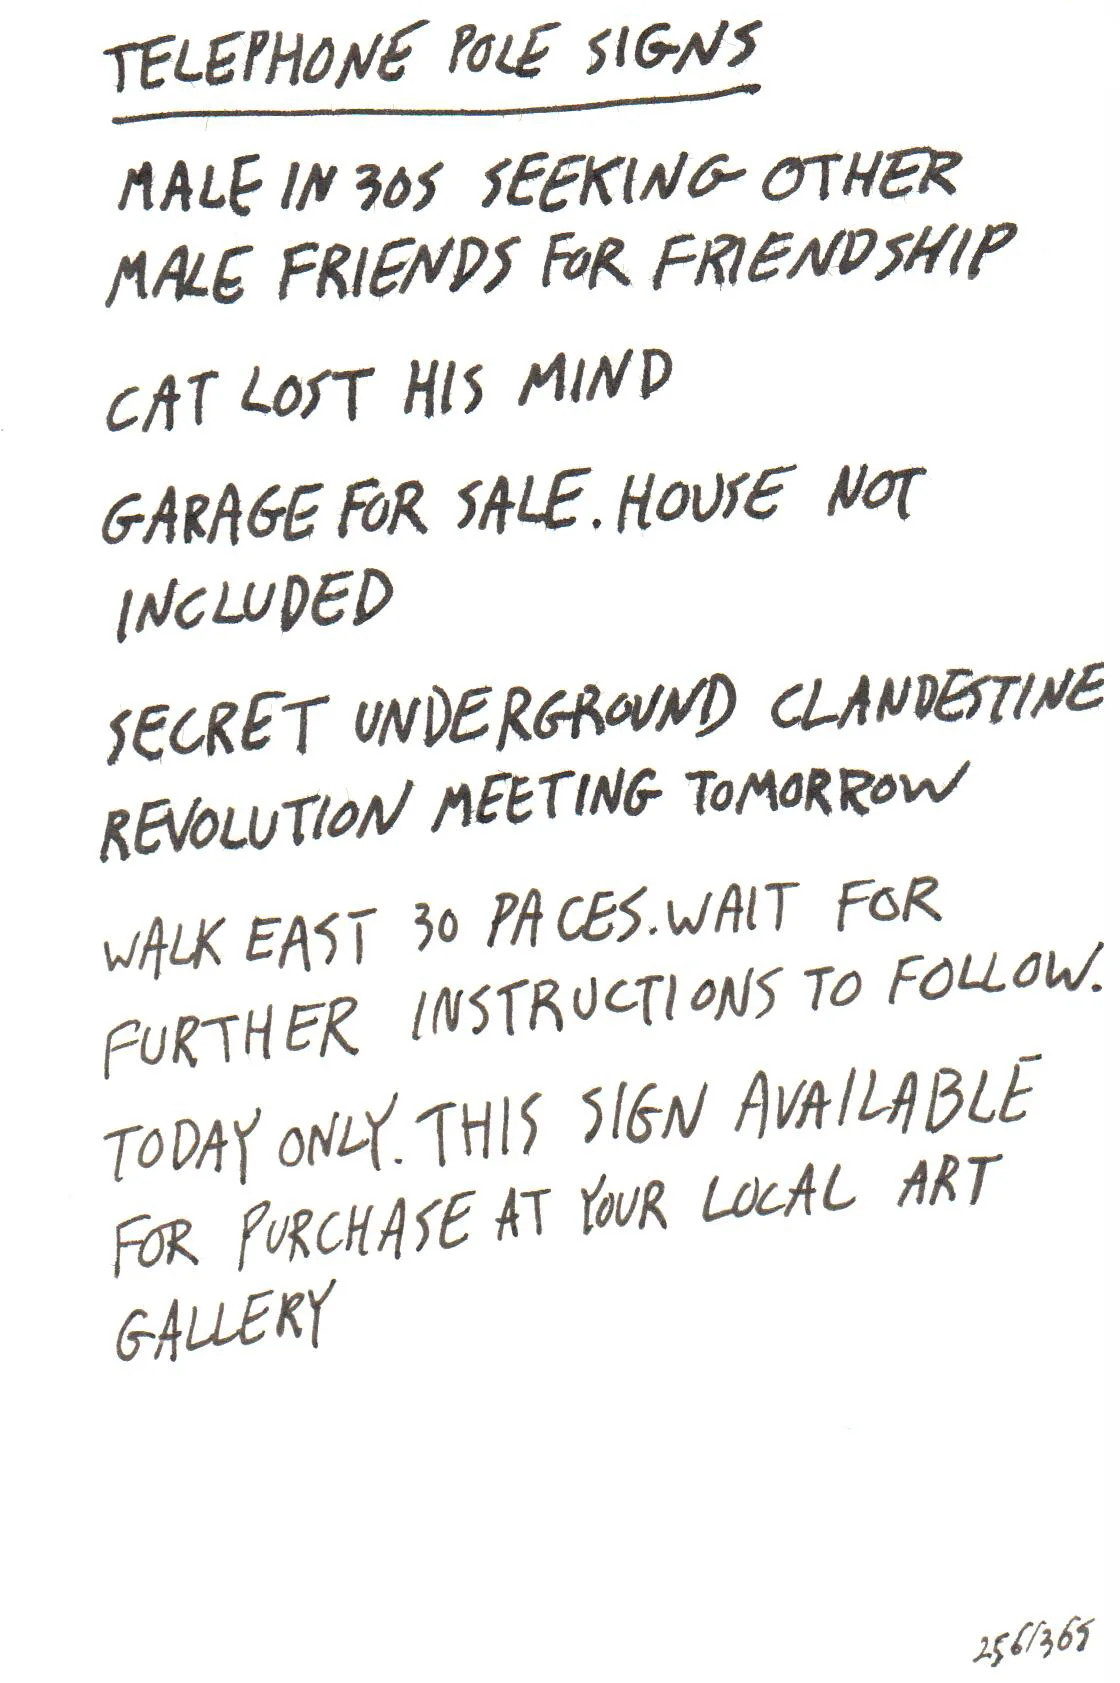 TELEPHONE POLE SIGNS
MALE IN 30S SEEKING OTHER
MALE FRIENDS FOR FRIENDSHIP
CAT LOST HIS MIND
GARAGE FOR SALE. HOUSE NOT
INCLUDED
SECRET UNDERGROUND CLANDESTINE
REVOLUTION MEETING TOMORROW
WALK EAST 30 PACES. WAIT FOR
FURTHER INSTRUCTIONS TO FOLLOW.
TODAY ONLY. THIS SIGN AVAILABLE
FOR PURCHASE AT YOUR LOCAL ART
GALLERY
256/365